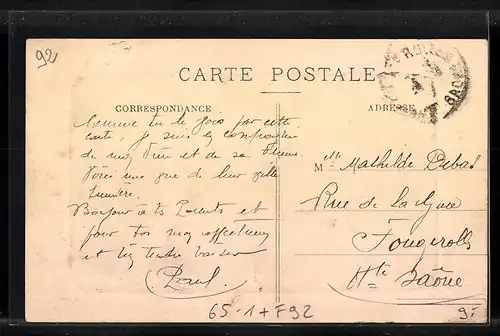 92
CARTE POSTALE
CORRESPONDANCE
ADRESSE
Comme tu le vois par cette
carte, je suis en compagnie
de mon et de sa
Voici une vue de leur ville
lumière.
Bonjour à tes Parents et
pour toi mon affectueux
et bien tendre baiser
Paul
Mlle Mathilde Dubas
Rue de la Gare
Fougerolles
Hte Saône
65-1+F92
9.-